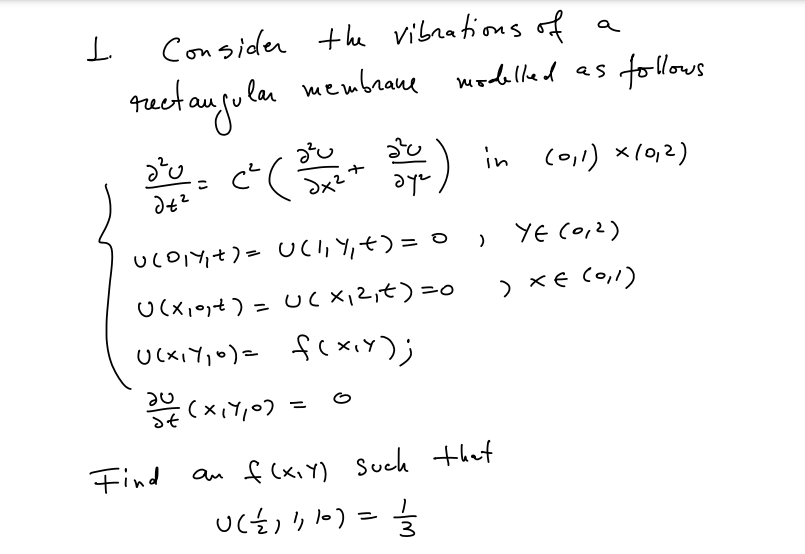 1. Consider the vibrations of a
rectangular membrane modelled as follows
∂²U/∂t² = c² ( ∂²U/∂x² + ∂²U/∂y² ) in (0,1) × (0,2)
U(0,Y,t) = U(1,Y,t) = 0 , Y∈(0,2)
U(x,0,t) = U(x,2,t) = 0 , x∈(0,1)
U(x,Y,0) = f(x,Y);
∂U/∂t (x,Y,0) = 0
Find an f(x,Y) such that
U(1/2, 1, 10) = 1/3